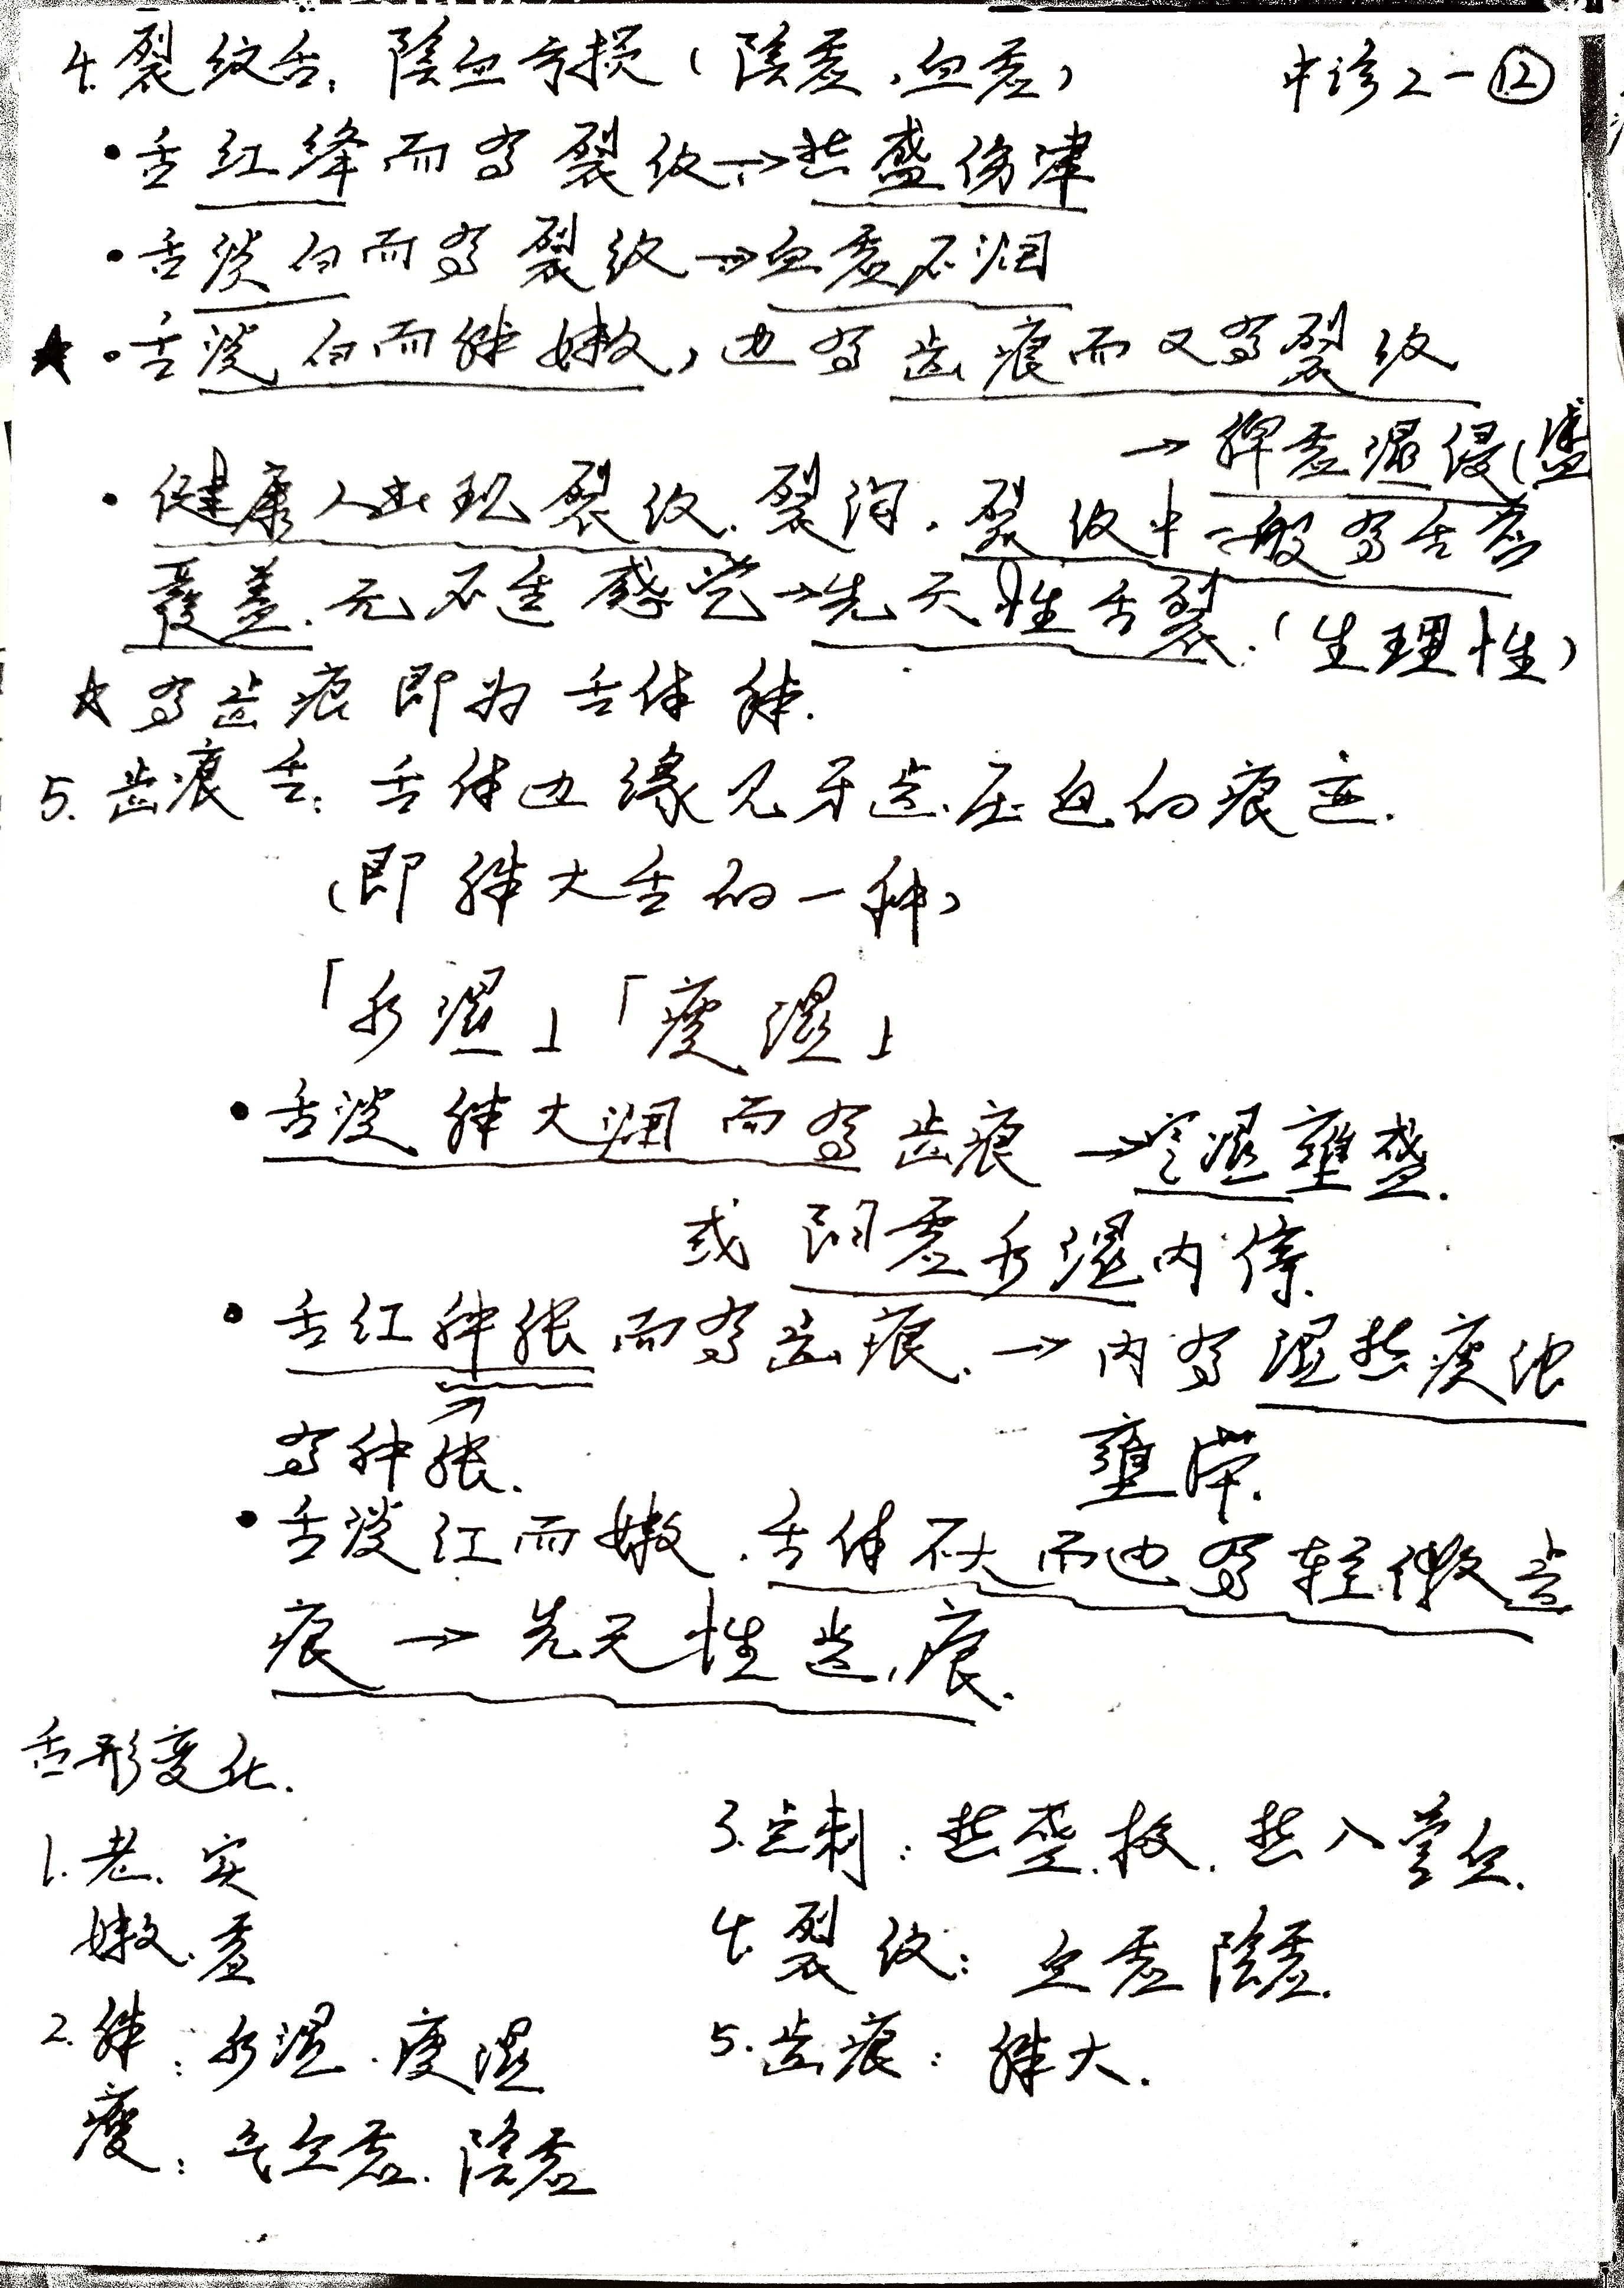 中诊2-⑫
4. 裂纹舌: 陰血亏损(陰虚,血虚)
• 舌红绛而有裂纹→热盛伤津
• 舌淡白而有裂纹→血虚不润
★ • 舌淡白而胖嫩,边有齿痕而又有裂纹
→ 脾虚湿侵(盛
• 健康人出现裂纹.裂沟.裂纹中一般有舌苔
覆盖.无不适感觉→先天性舌裂.(生理性)
☆ 有齿痕即为舌体胖.
5. 齿痕舌: 舌体边缘见牙齿压迫的痕迹.
(即胖大舌的一种)
「水湿」「痰湿」
• 舌淡胖大润而有齿痕 → 寒湿壅盛.
或 阳虚水湿内停.
• 舌红肿胀而有齿痕. → 内有湿热痰浊
有肿胀. 壅滞.
• 舌淡红而嫩.舌体不大而边有轻微齿
痕 → 先天性齿痕.
舌形变化.
1. 老.实
嫩.虚
2. 胖: 水湿.痰湿
瘦: 气血虚.陰虚
3. 点刺: 热盛极.热入营血.
4. 裂纹: 血虚 陰虚.
5. 齿痕: 胖大.